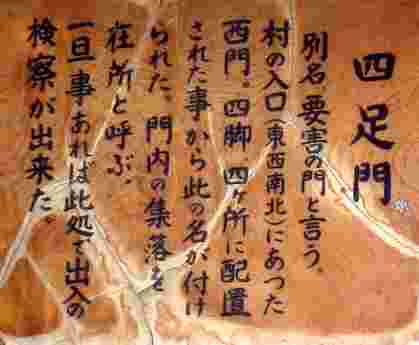 四足門
別名、要害の門と言う。
村の入口(東西南北)にあつた
西門。四脚、四ヶ所に配置
された事から此の名が付け
られた。門内の集落を
在所と呼ぶ。
一旦事あれば此処で出入の
検察が出来た。